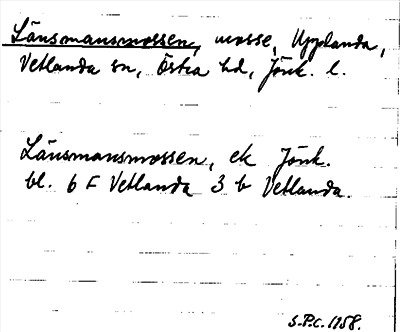 Länsmansmossen, mosse, Upplanda,
Vetlanda sn, Östra hd, Jönk. l.
Länsmansmossen, ek Jönk.
bl. 6 F Vetlanda 3 b Vetlanda.
S.P.C. 1958.